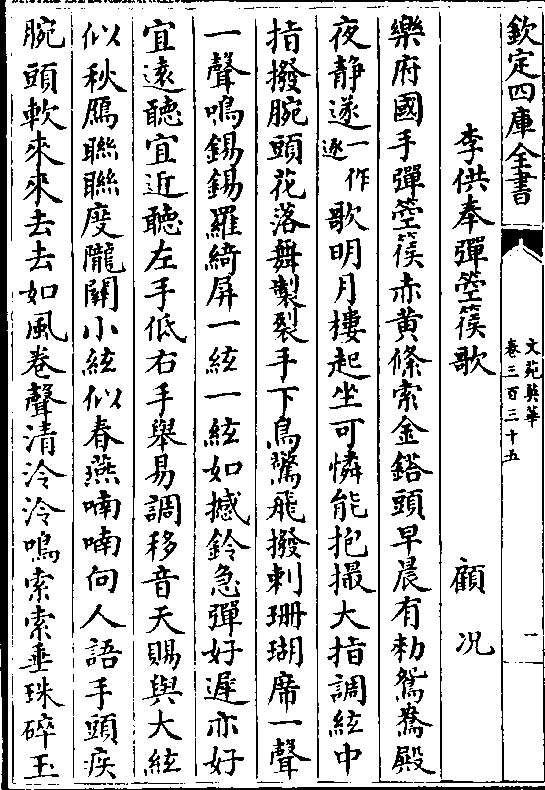 欽定四庫全書
文苑英華
卷三百三十五
一
李供奉彈箜篌歌
顧況
樂府國手彈箜篌赤黄絛索金鎝頭早晨有勅鴛鴦殿
夜静遂一作逐歌明月樓起坐可憐能抱撮大指調絃中
指撥腕頭花落舞製裂手下鳥驚飛撥剌珊瑚席一聲
一聲鳴錫錫羅綺屏一絃一絃如撼鈴急彈好遲亦好
宜遠聽宜近聽左手低右手舉易調移音天賜與大絃
似秋鴈聯聯度隴關小絃似春燕喃喃向人語手頭疾
腕頭軟來來去去如風卷聲清泠泠鳴索索垂珠碎玉